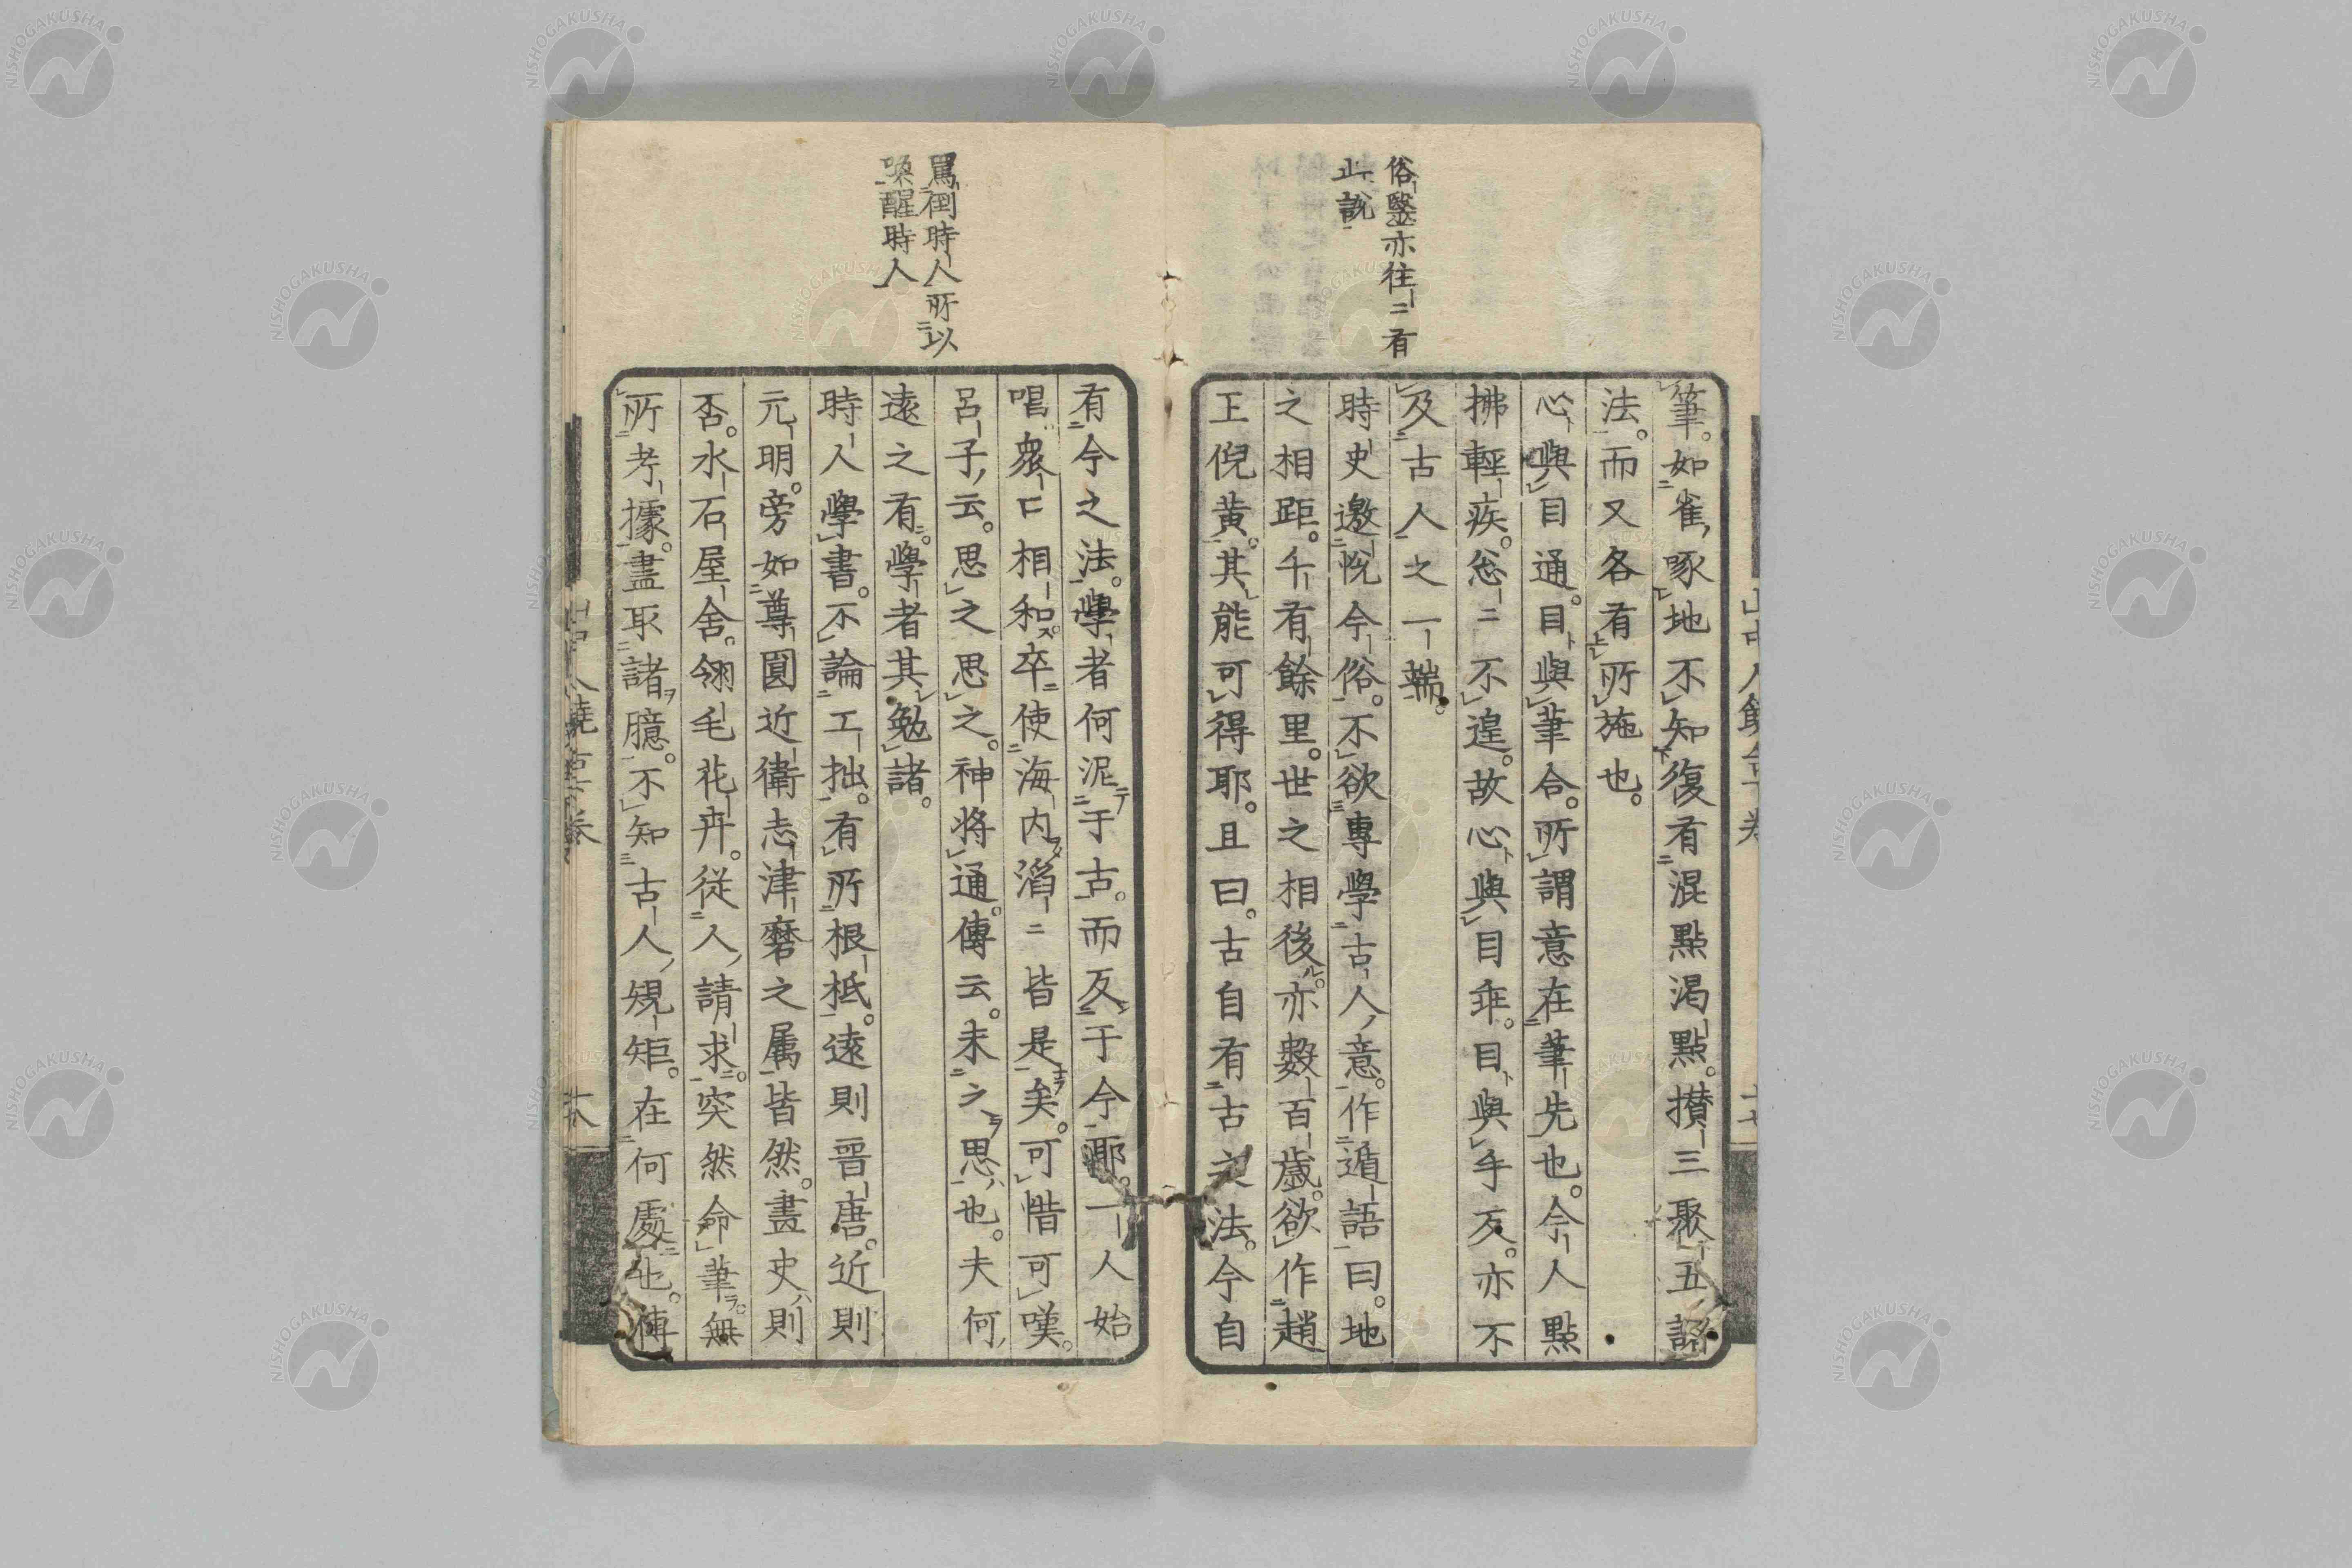 俗醫亦往〻有
此說
筆。如雀啄地不知復有混點渴點。攅三聚五諸
法。而又各有所施也。
心與目通。目與筆合。所謂意在筆先也。今人點
拂輕疾。怱〻不遑。故心與目乖。目與手反。亦不
及古人之一端。
時史邀悅今俗。不欲專學古人意。作遁語曰。地
之相距。千有餘里。世之相後。亦數百歲。欲作趙
王倪黃。其能可得耶。且曰。古自有古之法。今自
罵倒時人所以
喚醒時人
有今之法。學者何泥于古。而反于今耶。一人始
唱衆口相和。卒使海內滔〻皆是矣。可惜可嘆。
呂子云。思之思之。神將通。傳云。未之思也。夫何
遠之有。學者其勉諸。
時人學書。不論工拙。有所根柢。遠則晉唐。近則
元明。旁如尊圓近衛志津磨之屬皆然。畫史則
否。水石屋舍。翎毛花卉。從人請求。突然命筆。無
所考據。盡取諸臆。不知古人規矩。在何處也。傳
NISHOGAKUSHA